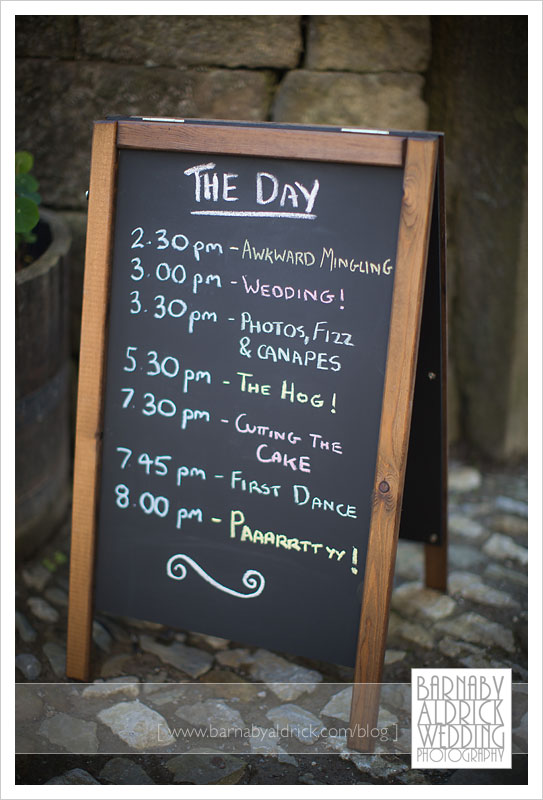 THE DAY
2.30 pm - AWKWARD MINGLING
3.00 pm - WEDDING!
3.30 pm - PHOTOS, FIZZ
& CANAPES
5.30 pm - THE HOG!
7.30 pm - CUTTING THE
CAKE
7.45 pm - FIRST DANCE
8.00 pm - PAAARRTTYY!
[ www.barnabyaldrick.com/blog ]
BARNABY
ALDRICK
WEDDING
PHOTOGRAPHY